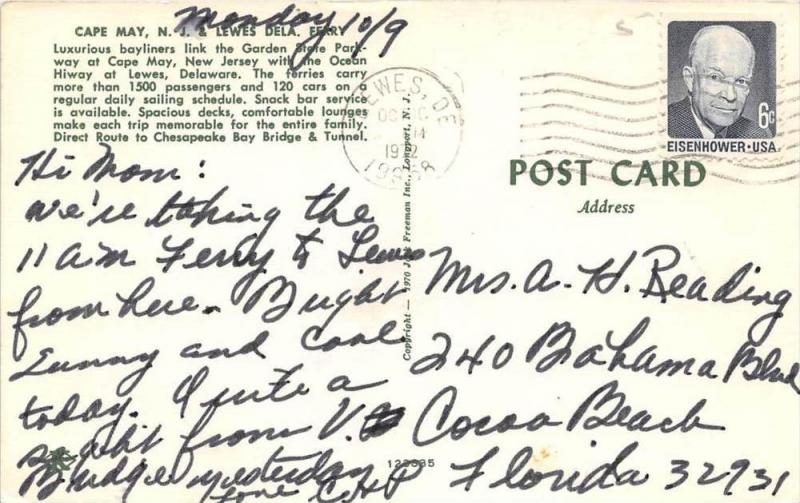 Monday 10/9
CAPE MAY, N. J. & LEWES DELA. FERRY
Luxurious bayliners link the Garden State Park-
way at Cape May, New Jersey with the Ocean
Hiway at Lewes, Delaware. The ferries carry
more than 1500 passengers and 120 cars on a
regular daily sailing schedule. Snack bar service
is available. Spacious decks, comfortable lounges
make each trip memorable for the entire family.
Direct Route to Chesapeake Bay Bridge & Tunnel.
Hi Mom:
We're taking the
11 am Ferry to Lewes
from here. Bright
Sunny and cool
today. Quite a
sight from V.
Bridge yesterday
Love
LEWES, DE
OC
1972
19958
Copyright — 1970 Jack Freeman Inc., Longport, N. J.
6c
EISENHOWER·USA
POST CARD
Address
Mrs. A. H. Reading
240 Bahama Blvd
Cocoa Beach
Florida 32931